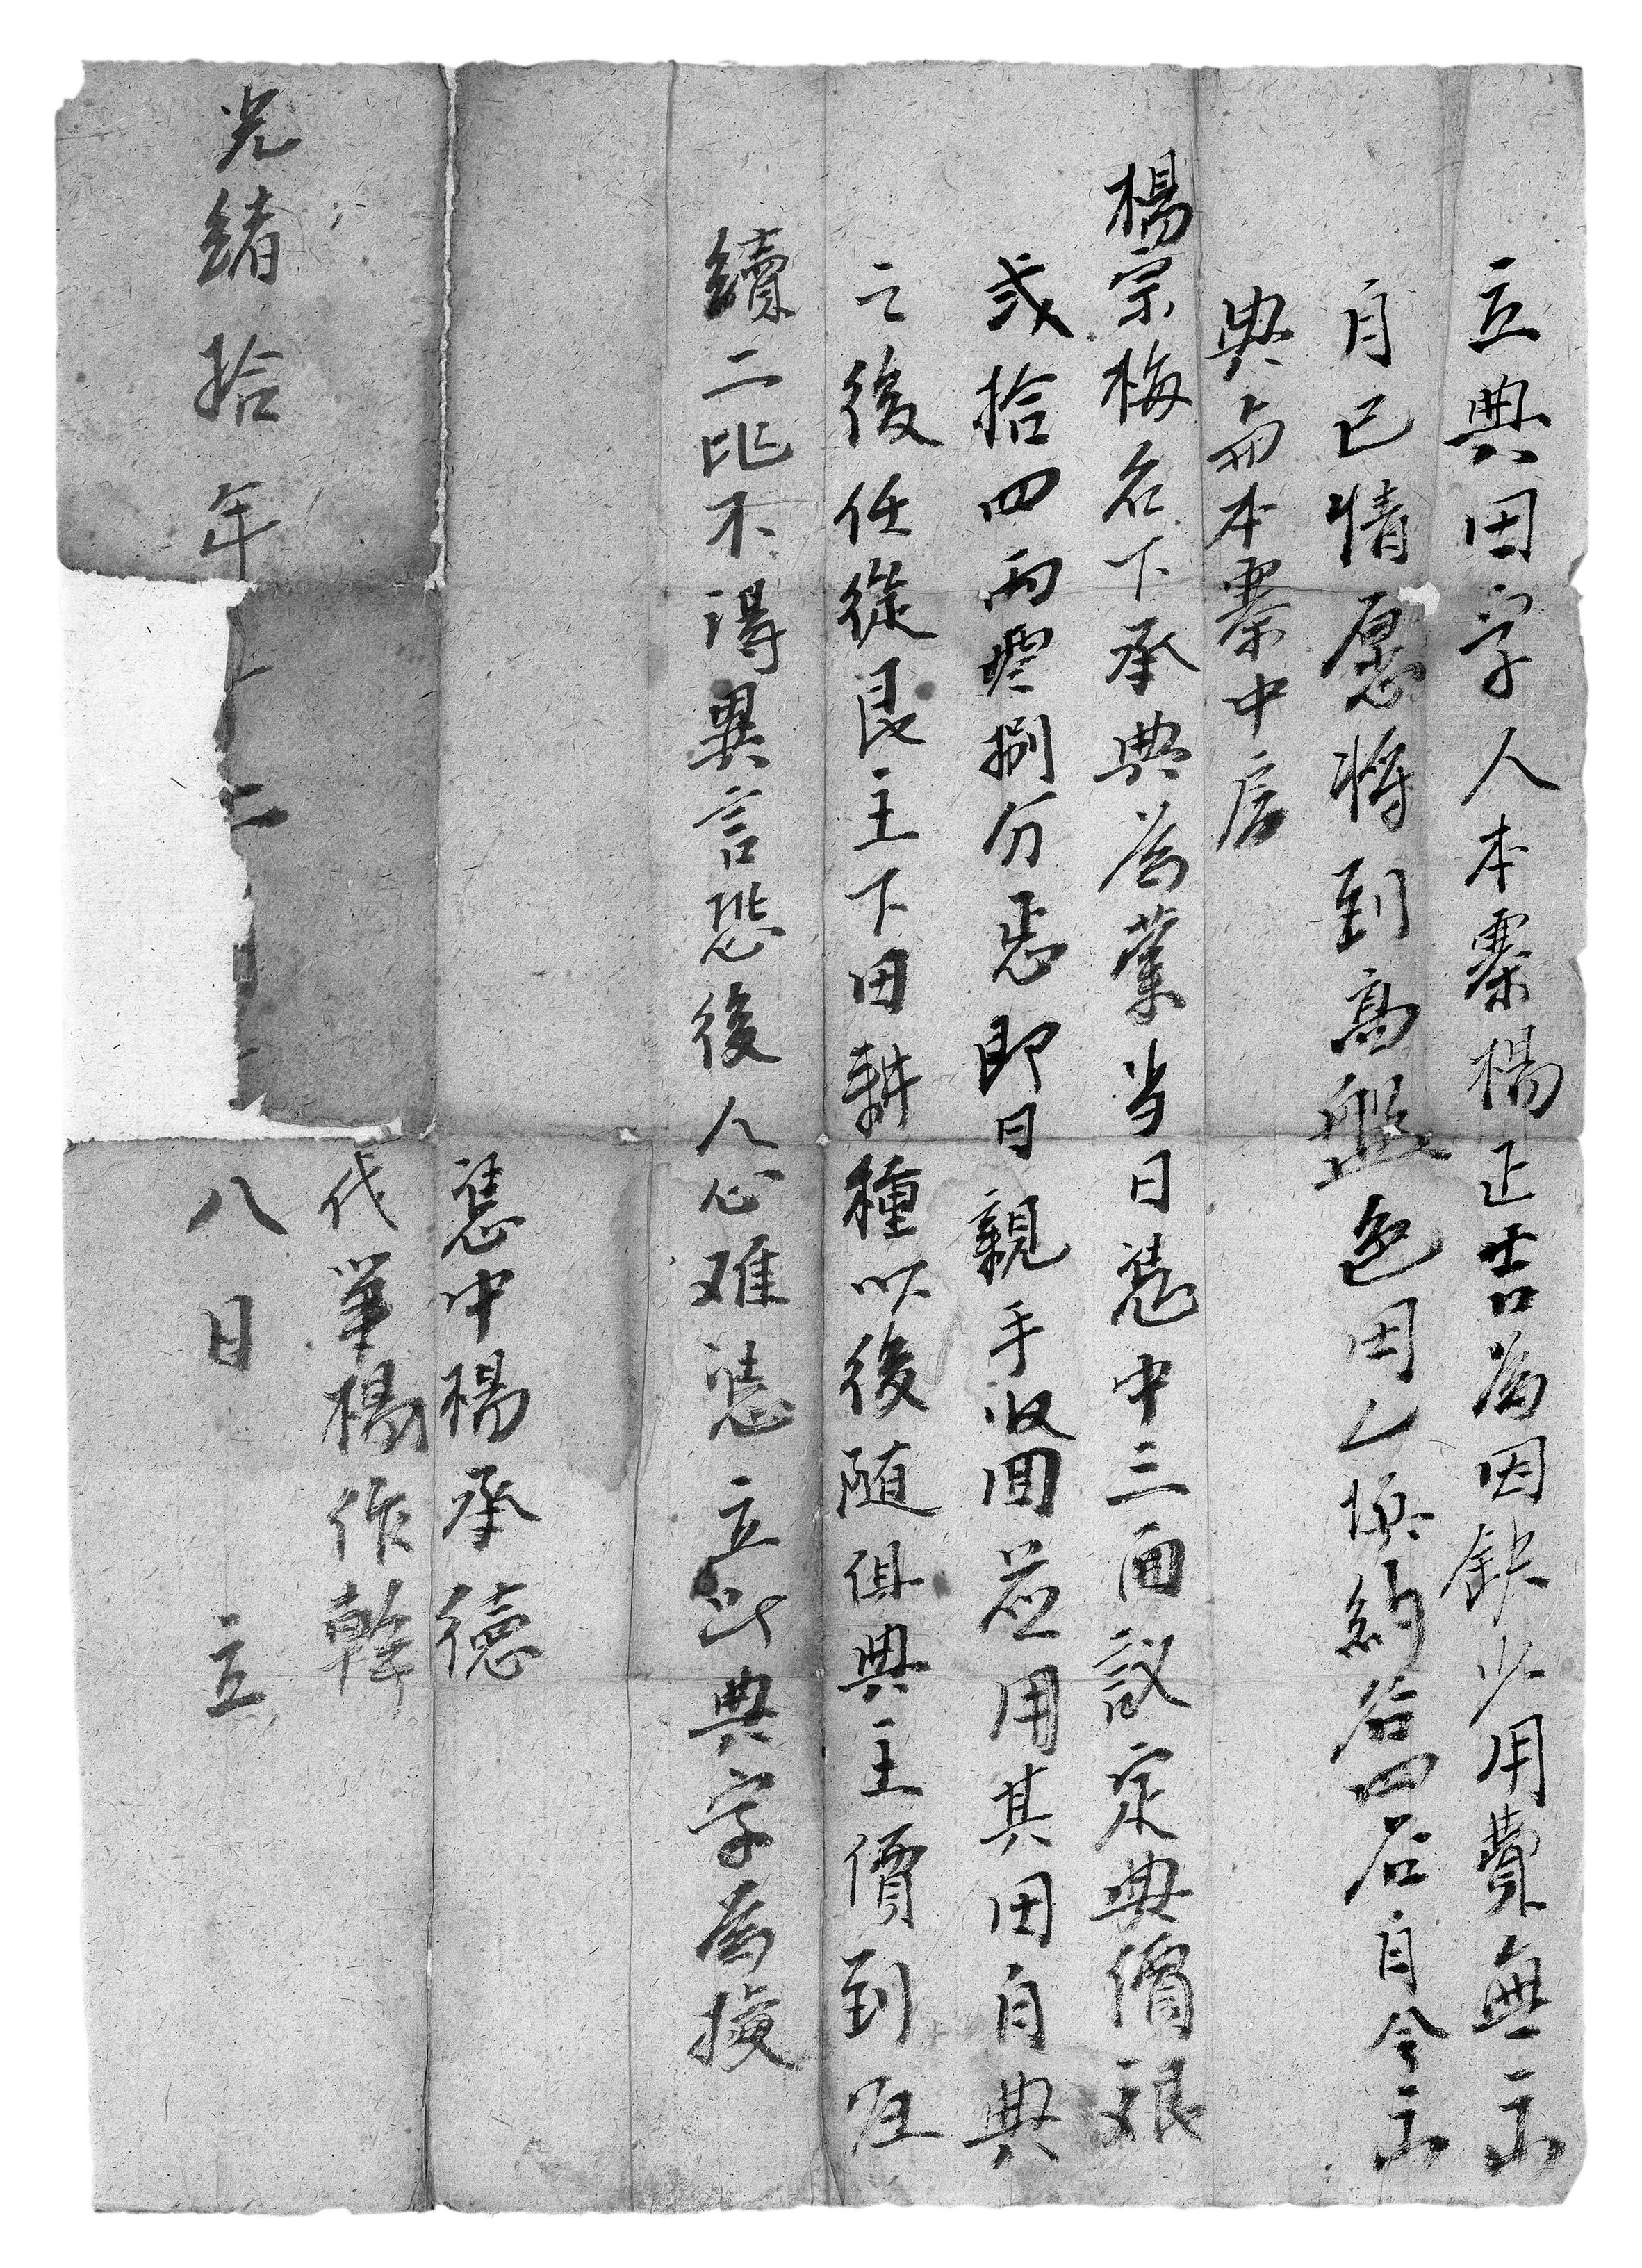 立典田字人本寨楊正吉為因缺少用費無出
自已情愿將到高盤包田乙坵約谷四石自今出
典與本寨中房
楊宗梅名下承典為業当日憑中三面議定典價銀
弍拾四両零捌分整即日親手收回应用其田自典
之後任從艮主下田耕種以後随俱典主價到田
續二比不得異言恐後人心难憑立此典字為據
憑中楊承德
代筆楊作幹
光緒拾年十二月 八日 立